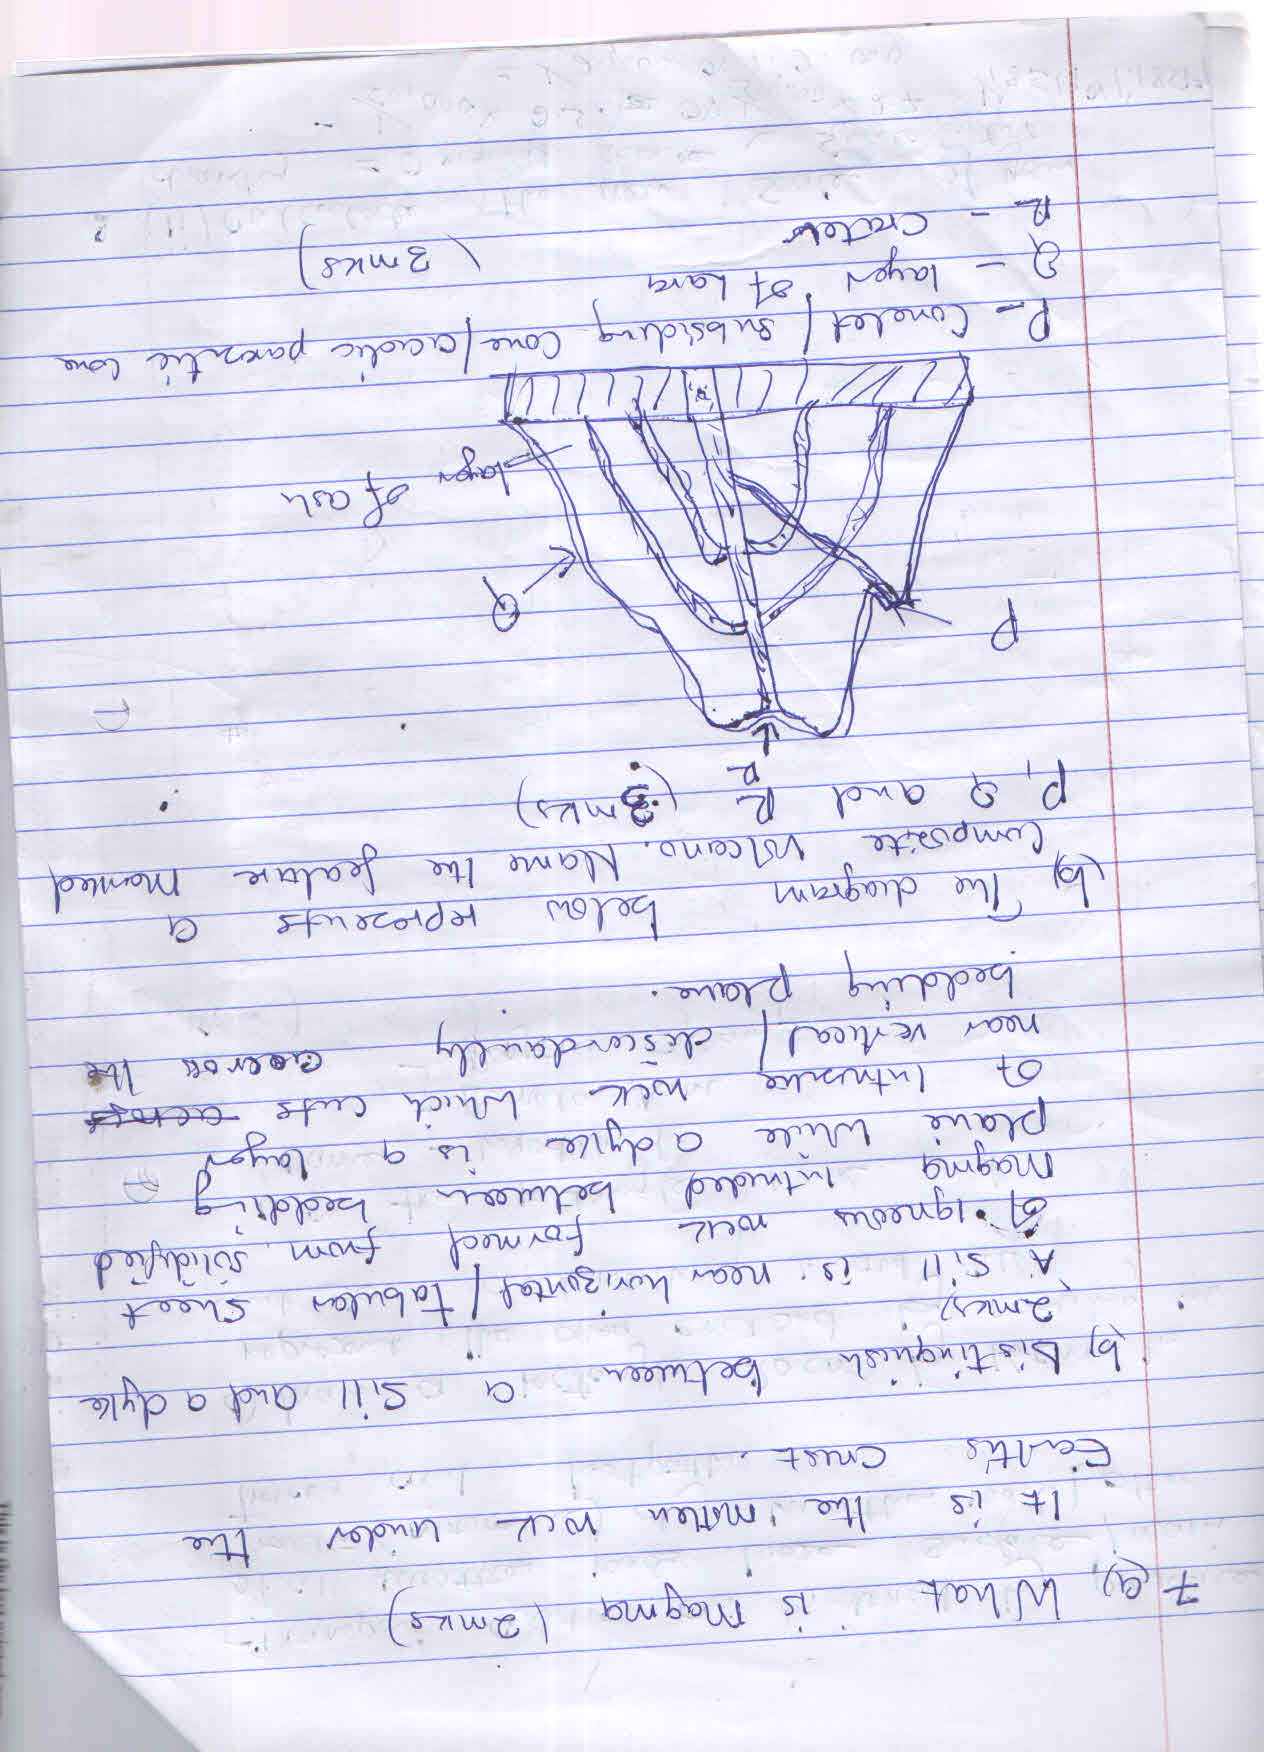 7(a), What is magma (2mks)
It is the molten rock under the
Earth's crust.
b) Distinguish between a Sill and a dyke
2mks)
A Sill is near horizontal / tabular sheet
of igneous rock formed from solidified
magma intruded between bedding
plane while a dyke is a layer
of intrusive rock which cuts across
near vertical / discordantly across the
bedding plane.
(b) The diagram below represents a
Composite volcano. Name the feature marked
P, Q and R (3mks)
R
P
Q
layer of ash
P- Conelet / subsiding Cone / acidic parasitic cone
Q - layer of Lava
(3mks)
R - Crater